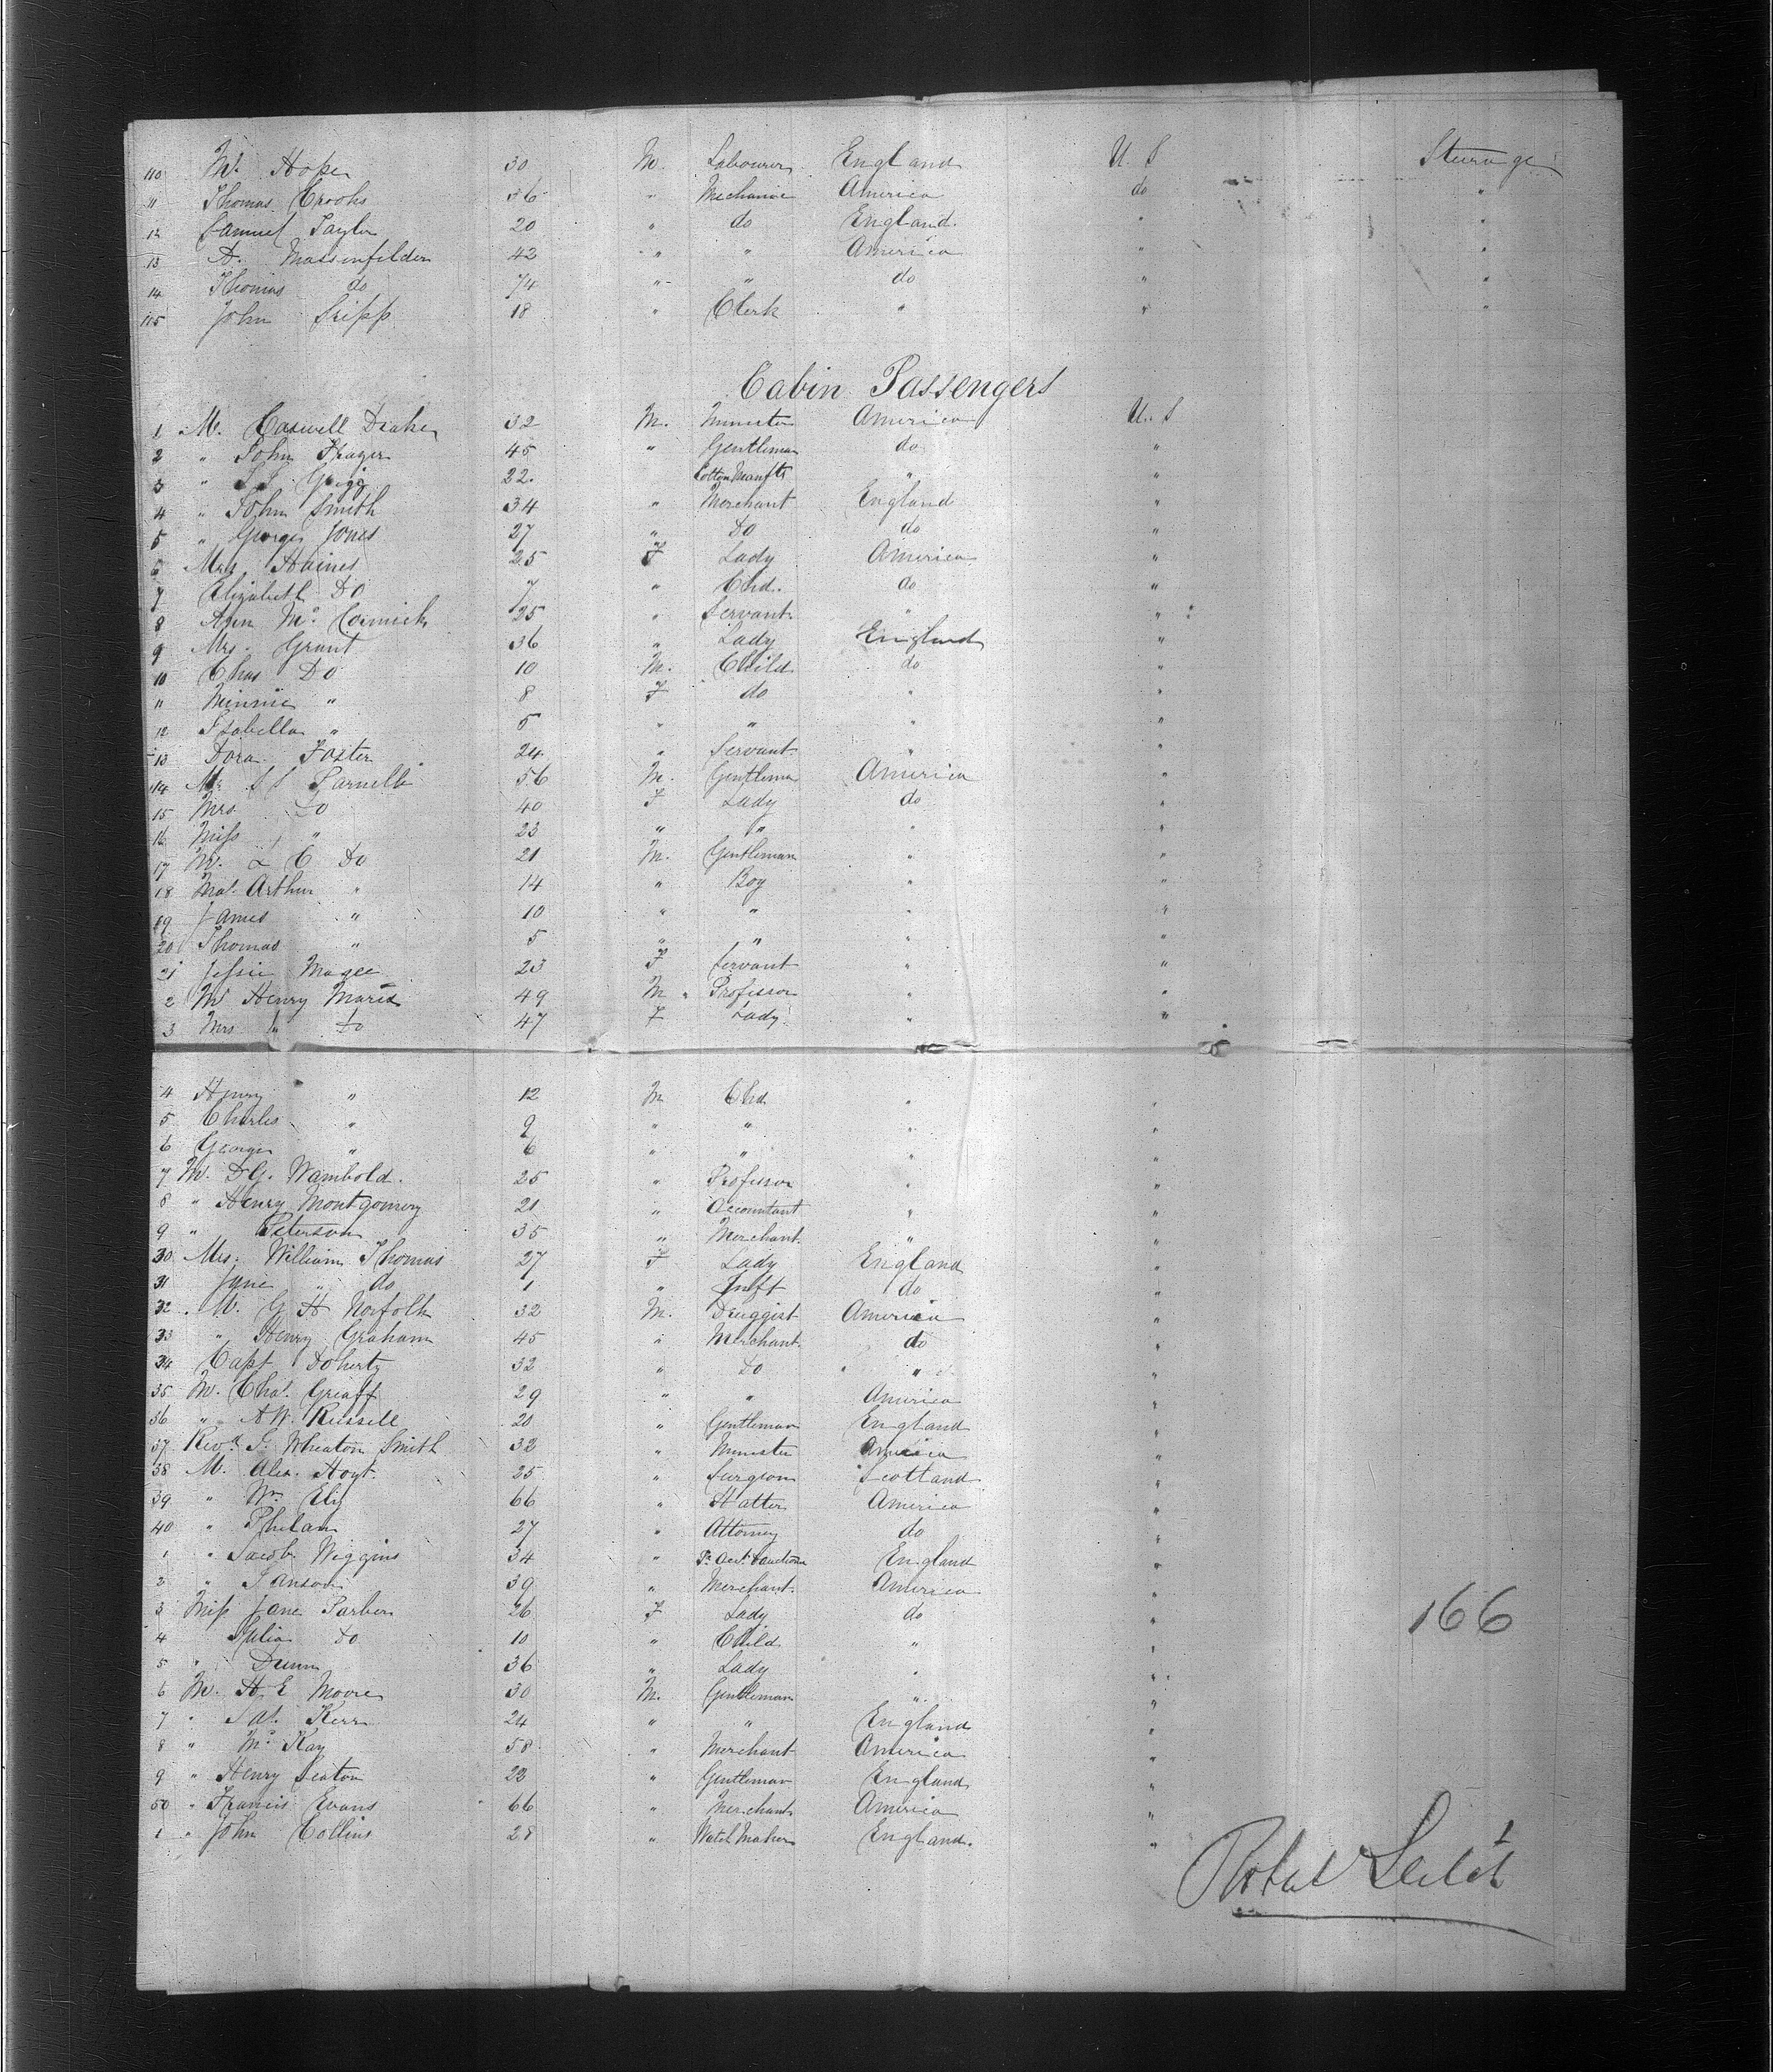 110 Mr. Hope 30 M. Labourer England U. S Steerage
11 Thomas Crooks 36 " Mechanic America do "
12 Samuel Taylor 20 " do England. " "
13 A. Massenfelder 42 " " America " "
14 Thomas do 74 " " do " "
115 John Tripp 18 " Clerk " " "
Cabin Passengers
1 Mr. Caswell Drake 32 M. Minister America U. S
2 " John Frazer 45 " Gentleman do "
3 " Grigg 22. Cotton Manftr " "
4 " John Smith 34 " Merchant England "
5 " George Jones 27 " Do do "
6 Mrs Haines 25 F Lady America "
7 Elizabeth Do 7 " Chd. do "
8 Ann Mc. Cormick 25 " Servant " "
9 Mrs. Grant 36 " Lady England "
10 Chas Do 10 M. Child do "
11 Minnie " 8 F do " "
12 Isabella " 5 " " " "
13 Dora Foster 24 " Servant " "
14 Mr. Parnell 56 M. Gentleman America "
15 Mrs Do 40 F Lady do "
16 Miss " 23 " " " "
17 Mr. L C Do 21 M. Gentleman " "
18 Mas. Arthur " 14 " Boy " "
19 James " 10 " " " "
20 Thomas " 5 " " " "
21 Jessie Magee 23 F Servant " "
2 Mr Henry 49 M " Professor " "
3 Mrs " Do 47 F Lady " "
4 Henry " 12 M Chd " "
5 Charles " 9 " " " "
6 George " 6 " " " "
7 Mr. D G. Wambold. 25 " Professor " "
8 " Henry Montgomery 21 " Accountant " "
9 " Peterson 35 " Merchant. " "
30 Mrs. William Thomas 27 F Lady England "
31 Jane " do 1 " Inft do "
32 Mr. G H Norfolk 32 M. Druggist America "
33 " Henry Graham 45 " Merchant. do "
34 Capt Doherty 32 " Do " "
35 Mr. Chas. Graff 29 " " America "
36 " A W. Russell 20 " Gentleman England "
37 Revd. J. Wheaton Smith 32 " Minister America "
38 Mr. Alex. Hoyt. 25 " Surgeon Scotland "
39 " Wm Ely 66 " Hatter America "
40 " Phelan 27 " Attorney do "
1 " Jacob Wiggins 34 " England "
2 " Janson 39 " Merchant. America "
3 Miss Jane Barber 26 F Lady do "
4 Julia Do 10 " Child " "
5 " Dunn 36 " Lady " "
6 Mr. H E Moore 30 M. Gentleman " "
7 " Jas. Kerr 24 " " England "
8 " Mc Kay 58 " Merchant America "
9 " Henry Seaton 22 " Gentleman England "
50 " Francis Evans 66 " Merchant America "
1 " John Collins 28 " Watch Maker England. "
166
Robert Leitch